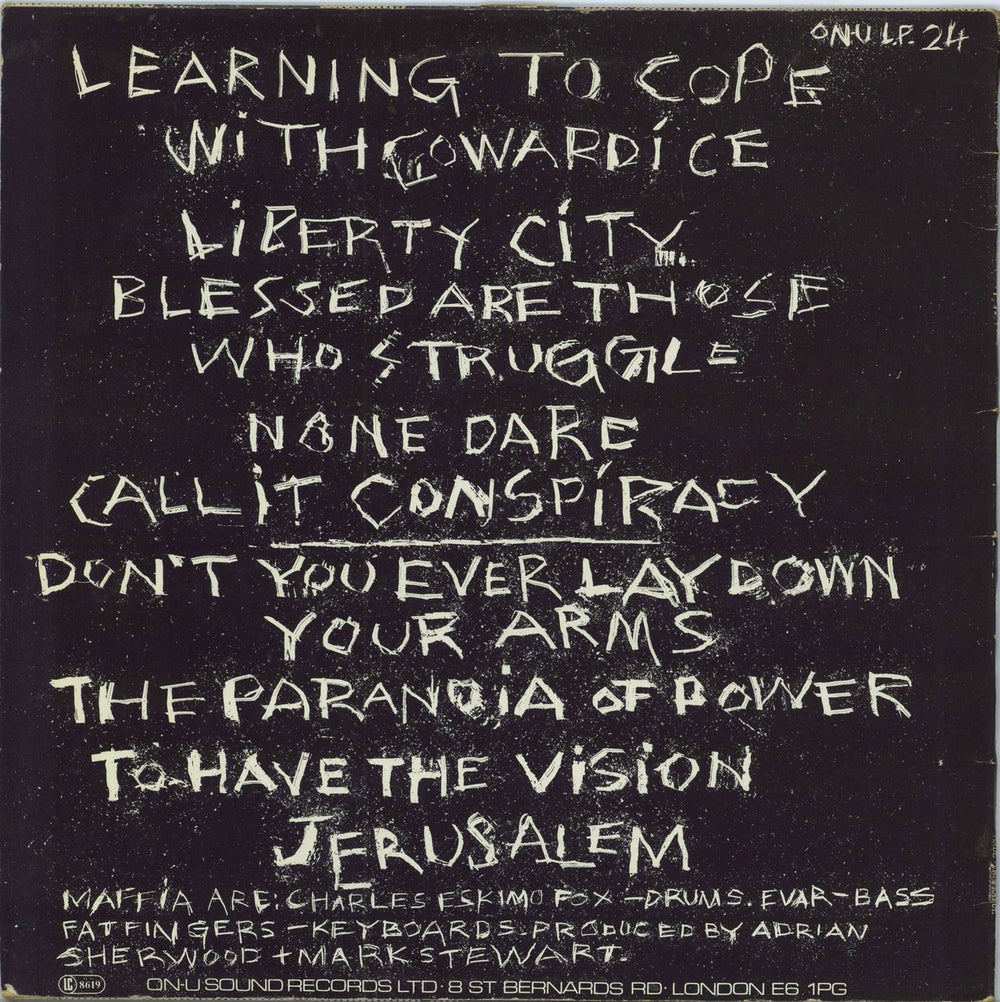 ON-U LP. 24
LEARNING TO COPE
WiTH COWARDiCE
LiBERTY CiTY.
BLESSED ARE THOSE
WHO STRUGGLE
NONE DARE
CALL iT CONSPiRACY
DON'T YOU EVER LAY DOWN
YOUR ARMS
THE PARANOiA OF POWER
TO HAVE THE ViSiON
JERUSALEM
MAFFiA ARE: CHARLES ESKIMO FOX - DRUMS. EVAR - BASS
FATFINGERS - KEYBOARDS. PRODUCED BY ADRIAN
SHERWOOD + MARK STEWART.
LC 8619 ON-U SOUND RECORDS LTD · 8 ST BERNARDS RD · LONDON E6. 1PG